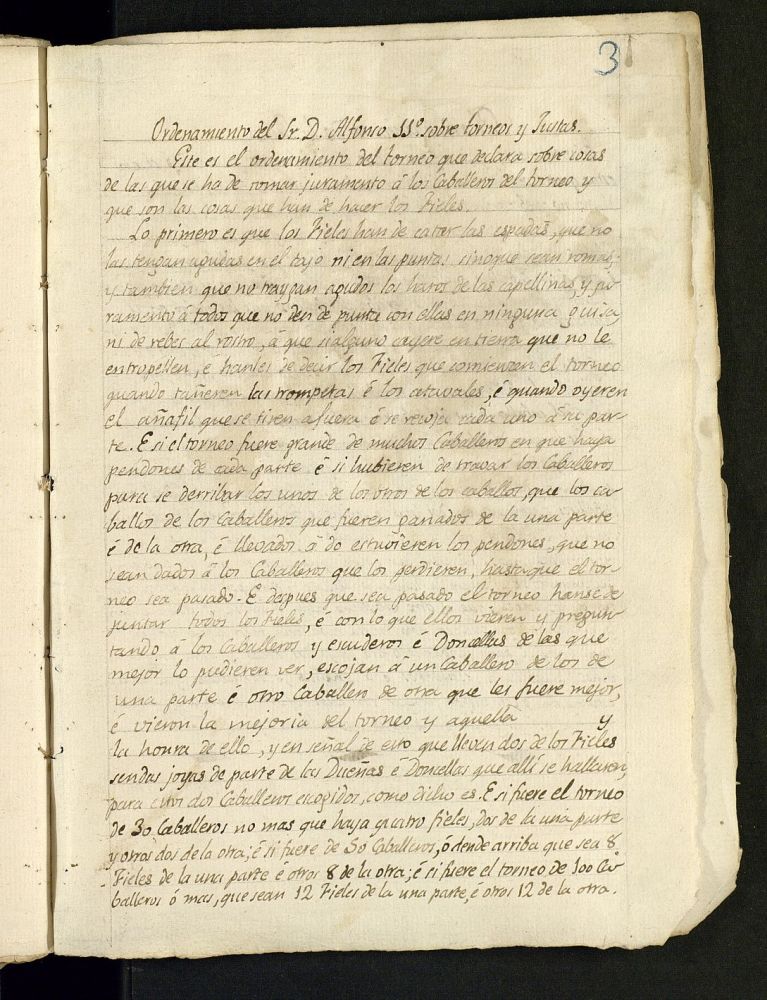 3
Ordenamiento del Sr. D. Alfonso 11º sobre torneos y Justas.
Este es el ordenamiento del torneo que declara sobre cosas
de las que se ha de tomar juramento á los Caballeros del torneo y
que son las cosas que han de hacer los Fieles.
Lo primero es que los Fieles han de catar las espadas, que no
las tengan agudas en el tajo ni en las punta; sinoque sean romas;
y tambien que no traygan agudos los haros de las capellinas, y ju-
ramento á todos que no den de punta con ellas en ninguna guisa,
ni de rebes al rostro, á que si alguno cayere en tierra que no le
entropellen, é hanles de decir los Fieles que comienzen el torneo
quando tañeren las trompetas é los atavales, é quando oyeren
el añafil que se tiren afuera é se recoja cada uno á su par-
te. E si el torneo fuere grande de muchos Caballeros en que haya
pendones de cada parte é si hubieren de travar los Caballeros
para se derribar los unos de los otros de los caballos, que los ca-
ballos de los Caballeros que fueren ganados de la una parte
é de la otra, é llevados á do estuvieren los pendones, que no
sean dados á los Caballeros que los perdieren, hasta que el tor-
neo sea pasado. E despues que sea pasado el torneo hanse de
juntar todos los Fieles, é con lo que ellos vieren y pregun-
tando á los Caballeros y escuderos é Doncellas de las que
mejor lo pudieren ver, escojan á un Caballero de los de
una parte é otro Caballero de otra que les fuere mejor,
é vieron la mejoria del torneo y aquella y
la honra de ello, y en señal de esto que lleven dos de los Fieles
sendas joyas de parte de las Dueñas é Doncellas que allí se hallaren,
para estos dos Caballeros escogidos, como dicho es. E si fuere el torneo
de 30 Caballeros no mas que haya quatro fieles, dos de la una parte
y otros dos de la otra; é si fuere de 50 Caballeros, ó dende arriba que sea 8
Fieles de la una parte é otros 8 de la otra; é si fuere el torneo de 100 Ca-
balleros ó mas, que sean 12 Fieles de la una parte, é otros 12 de la otra.